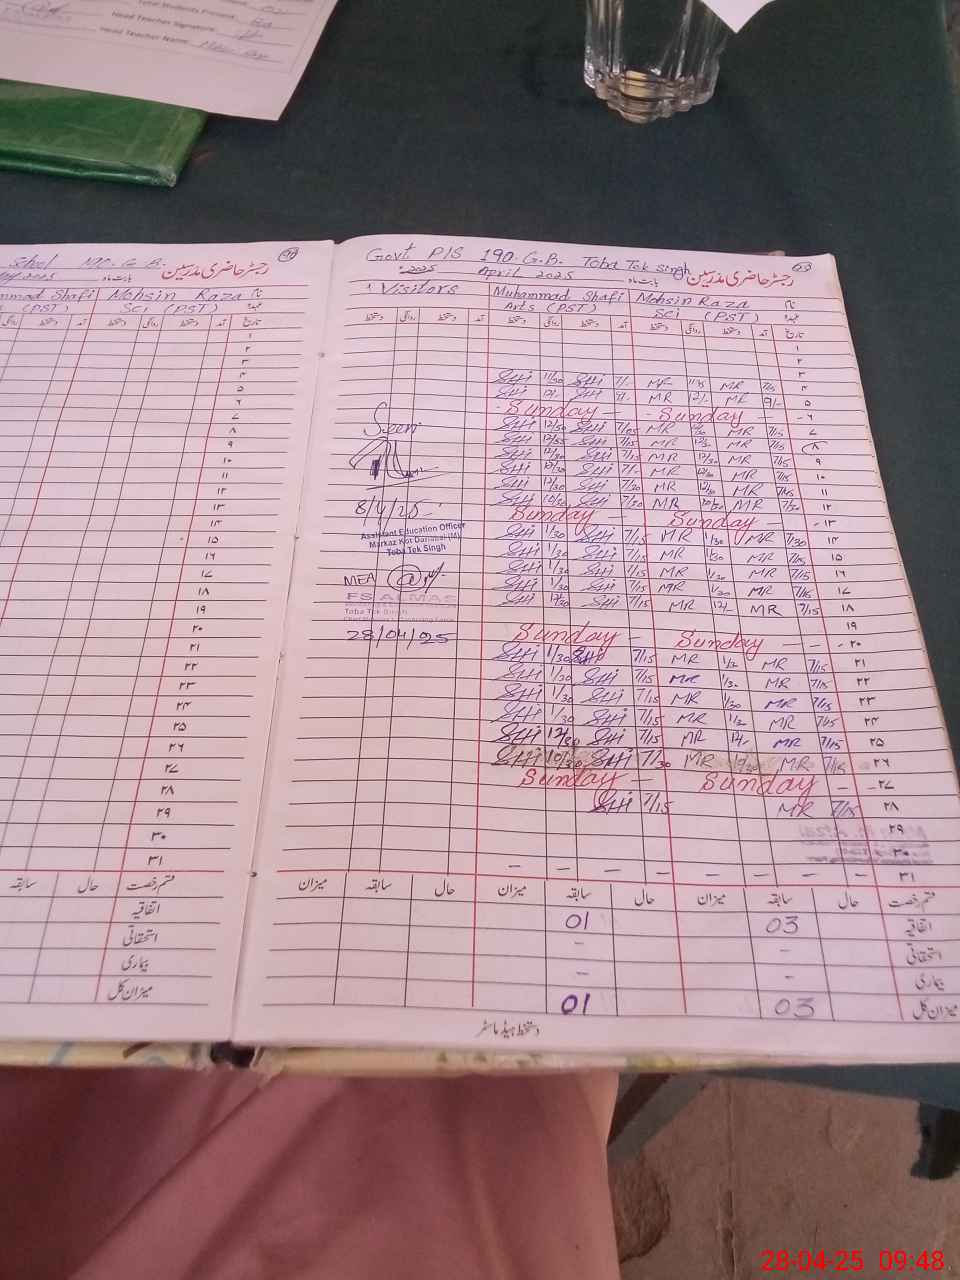 Total Students Present
Head Teacher Signature:
Head Teacher Name:
School
رجسٹر حاضری مدرسین
بابت ماہ
Shafi Mohsin Raza
(PST) Sci (PST)
تاریخ
۱
۲
۳
۴
۵
۶
۷
۸
۹
۱۰
۱۱
۱۲
۱۳
۱۴
۱۵
۱۶
۱۷
۱۸
۱۹
۲۰
۲۱
۲۲
۲۳
۲۴
۲۵
۲۶
۲۷
۲۸
۲۹
۳۰
۳۱
سابقہ حال قسم رخصت
اتفاقیہ
استحقاقی
بیماری
میزان کل
Govt P/S 190 G.B. Toba Tek Singh رجسٹر حاضری مدرسین
2025 April 2025 بابت ماہ
Visitors Muhammad Shafi Mohsin Raza
Arts (PST) Sci (PST)
دستخط روانگی دستخط آمد دستخط روانگی دستخط آمد تاریخ
۱
۲
۳
SHi 11/30 SHi 7/- MR MR ۴
SHi SHi MR 12/- MR 9/- ۵
Sunday — - Sunday — ۶
SHi 12/30 SHi MR MR 7/15 ۷
SHi SHi 7/15 MR MR 7/15 ۸
SHi 12/30 SHi 7/15 MR 12/30 MR 7/15 ۹
SHi 12/30 SHi 7/- MR 12/30 MR 7/15 ۱۰
SHi 12/30 SHi 7/20 MR MR ۱۱
SHi 10/30 SHi 7/30 MR 10/30 MR 7/30 ۱۲
Sunday — Sunday — ۱۳
SHi 1/30 SHi 7/15 MR 1/30 MR 7/30 ۱۴
SHi 1/30 SHi 7/15 MR 1/30 MR 7/15 ۱۵
SHi 1/30 SHi 7/15 MR 1/30 MR 7/15 ۱۶
SHi 1/30 SHi 7/15 MR 1/30 MR 7/15 ۱۷
SHi 12/30 SHi 7/15 MR 12/- MR 7/15 ۱۸
۱۹
Sunday — Sunday — ۲۰
SHi 1/30 SHi 7/15 MR MR 7/15 ۲۱
SHi 1/30 SHi 7/15 MR 1/30 MR 7/15 ۲۲
SHi 1/30 SHi 7/15 MR 1/30 MR 7/15 ۲۳
SHi 1/30 SHi 7/15 MR MR 7/15 ۲۴
SHi 12/30 SHi 7/15 MR 12/- MR 7/15 ۲۵
SHi 10/30 SHi 7/30 MR MR 7/15 ۲۶
Sunday — Sunday — ۲۷
SHi 7/15 MR 7/15 ۲۸
۲۹
۳۰
۳۱
Seen
8/4/25
Assistant Education Officer
Markaz Kot Danabal (M)
Toba Tek Singh
MEA
FS ALMAS
Toba Tek Singh
28/04/025
میزان سابقہ حال میزان سابقہ حال میزان سابقہ حال قسم رخصت
01 03 اتفاقیہ
- - استحقاقی
- - بیماری
01 03 میزان کل
دستخط ہیڈ ماسٹر
28-04-25 09:48